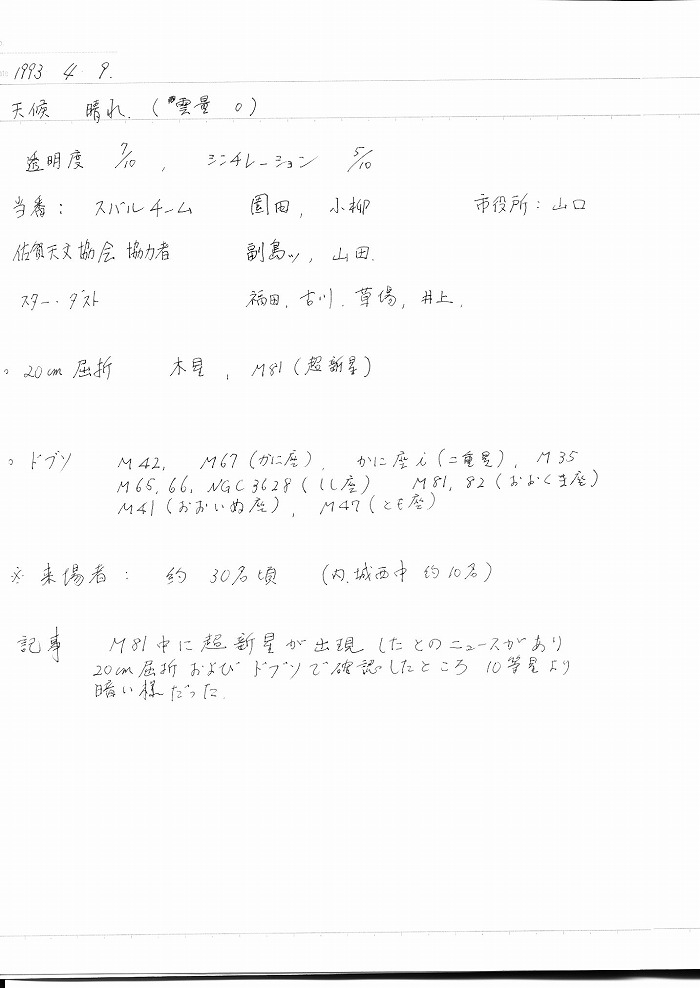 1993 4 9.
天候 晴れ. (雲量 0)
透明度 7/10 , シンチレーション 5/10
当番: スバルチーム 園田, 小柳 市役所: 山口
佐賀天文協会 協力者 副島ッ, 山田.
スター・ダスト 福田. 古川. 草場, 井上.
○ 20cm 屈折 木星 , M81 (超新星)
○ ドブソ M42, M67 (かに座), かに座 i (二重星), M35
M65, 66, NGC 3628 (しし座) M81, 82 (おおくま座)
M41 (おおいぬ座), M47 (とも座)
※ 来場者: 約 30名頃 (内.城西中 約10名)
記事 M81中に超新星が出現したとのニュースがあり
20cm屈折およびドブソで確認したところ 10等星より
暗い様だった.